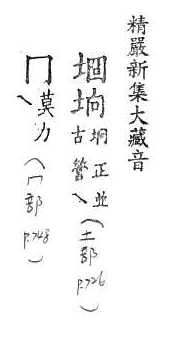 精嚴新集大藏音
堌坰坰正並古螢乀(土部 p.726)
冂莫力乀(冂部 p.748)